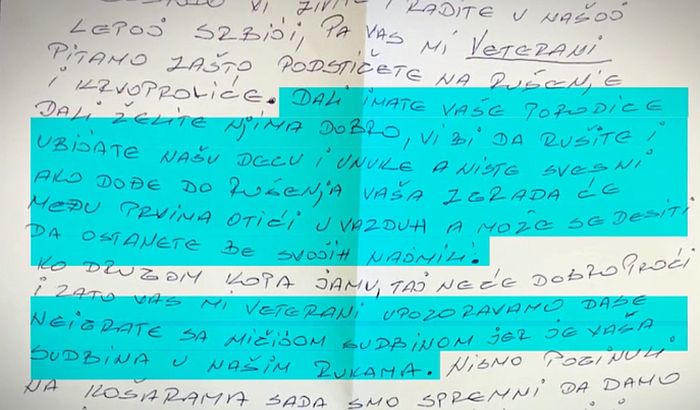 VI ŽIVITE I RADITE U NAŠOJ
LEPOJ SRBIJI, PA VAS MI VETERANI
PITAMO ZAŠTO PODSTIČETE NA RUŠENJE
I KRVOPROLIĆE. DALI IMATE VAŠE PORODICE
DALI ŽELITE NJIMA DOBRO, VI BI DA RUŠITE I
UBIJATE NAŠU DECU I UNUKE A NISTE SVESNI
AKO DOĐE DO RUŠENJA VAŠA ZGRADA ĆE
MEĐU PRVIMA OTIĆI U VAZDUH A MOŽE SE DESITI
DA OSTANETE BE SVOJIH NAJMILI.
KO DRUGOM KOPA JAMU, TAJ NEĆE DOBRO PROĆI
I ZATO VAS MI VETERANI UPOZORAVAMO DASE
NEIGRATE SA MIČIJOM SUDBINOM JER JE VAŠA
SUDBINA U NAŠIM RUKAMA. NISMO POGINULI
NA KOŠARAMA SADA SMO SPREMNI DA DAMO